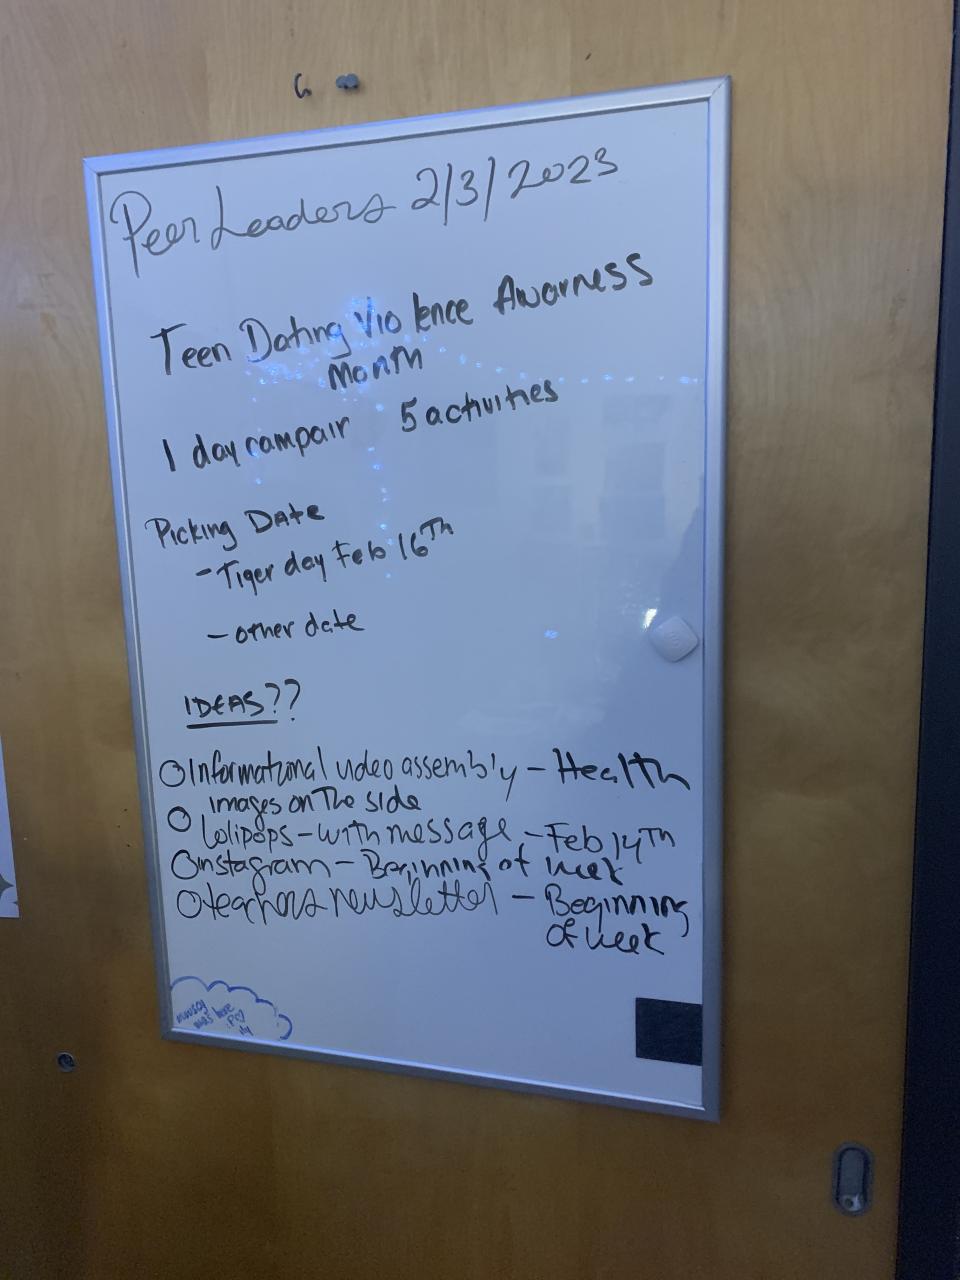 Peer Leaders 2/3/2023
Teen Dating Violence Awarness
Month
1 day campair 5 activities
Picking Date
- Tiger day Feb 16Th
- other date
IDEAS??
O Informational video assembly - Health
O Images on The side
Lolipops - with message - Feb 14Th
O Instagram - Beginning of week
O teachers newsletter - Beginning
of week
was here